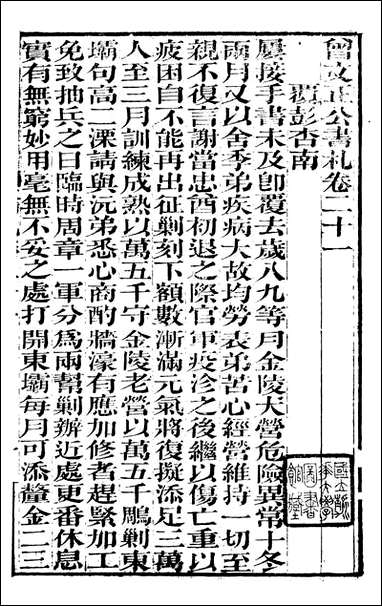 曾文正公書札卷二十一
覆彭杏南
屢接手書未及卽覆去歲八九等月金陵大營危險異常十冬
兩月又以舍季弟疾病大故均勞表弟苦心經營維持一切至
親不復言謝當忠酋初退之際官軍疫沴之後繼以傷亡重以
疲困自不能再出征剿刻下額數漸滿元氣將復擬添足三萬
人至三月訓練成熟以萬五千守金陵老營以萬五千鵰剿東
壩句高二溧請與沅弟悉心商酌牆濠有應加修者趕緊加工
免致抽兵之日臨時周章一軍分爲兩幫剿辦近處更番休息
實有無窮妙用毫無不妥之處打開東壩每月可添釐金二三